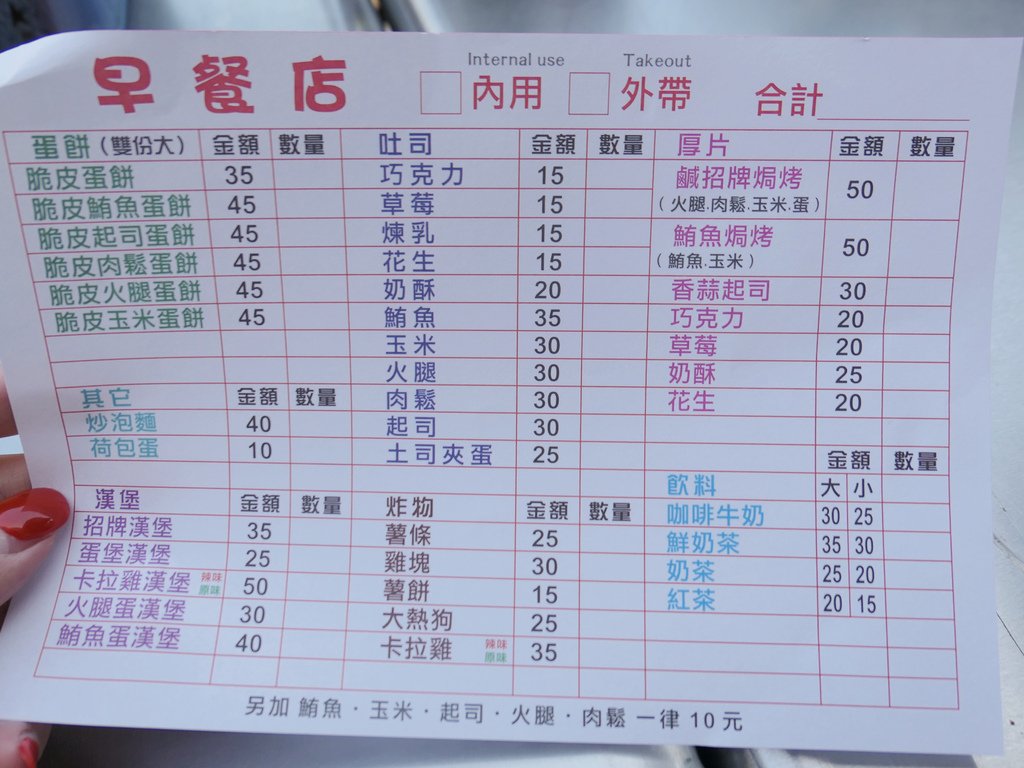 早餐店 Internal use 內用 Takeout 外帶 合計
蛋餅(雙份大) 金額 數量
脆皮蛋餅 35
脆皮鮪魚蛋餅 45
脆皮起司蛋餅 45
脆皮肉鬆蛋餅 45
脆皮火腿蛋餅 45
脆皮玉米蛋餅 45
其它 金額 數量
炒泡麵 40
荷包蛋 10
漢堡 金額 數量
招牌漢堡 35
蛋堡漢堡 25
卡拉雞漢堡 辣味 原味 50
火腿蛋漢堡 30
鮪魚蛋漢堡 40
吐司 金額 數量
巧克力 15
草莓 15
煉乳 15
花生 15
奶酥 20
鮪魚 35
玉米 30
火腿 30
肉鬆 30
起司 30
土司夾蛋 25
炸物 金額 數量
薯條 25
雞塊 30
薯餅 15
大熱狗 25
卡拉雞 辣味 原味 35
厚片 金額 數量
鹹招牌焗烤 50
(火腿.肉鬆.玉米.蛋)
鮪魚焗烤 50
(鮪魚.玉米)
香蒜起司 30
巧克力 20
草莓 20
奶酥 25
花生 20
金額 數量
飲料 大 小
咖啡牛奶 30 25
鮮奶茶 35 30
奶茶 25 20
紅茶 20 15
另加 鮪魚．玉米．起司．火腿．肉鬆 一律 10 元